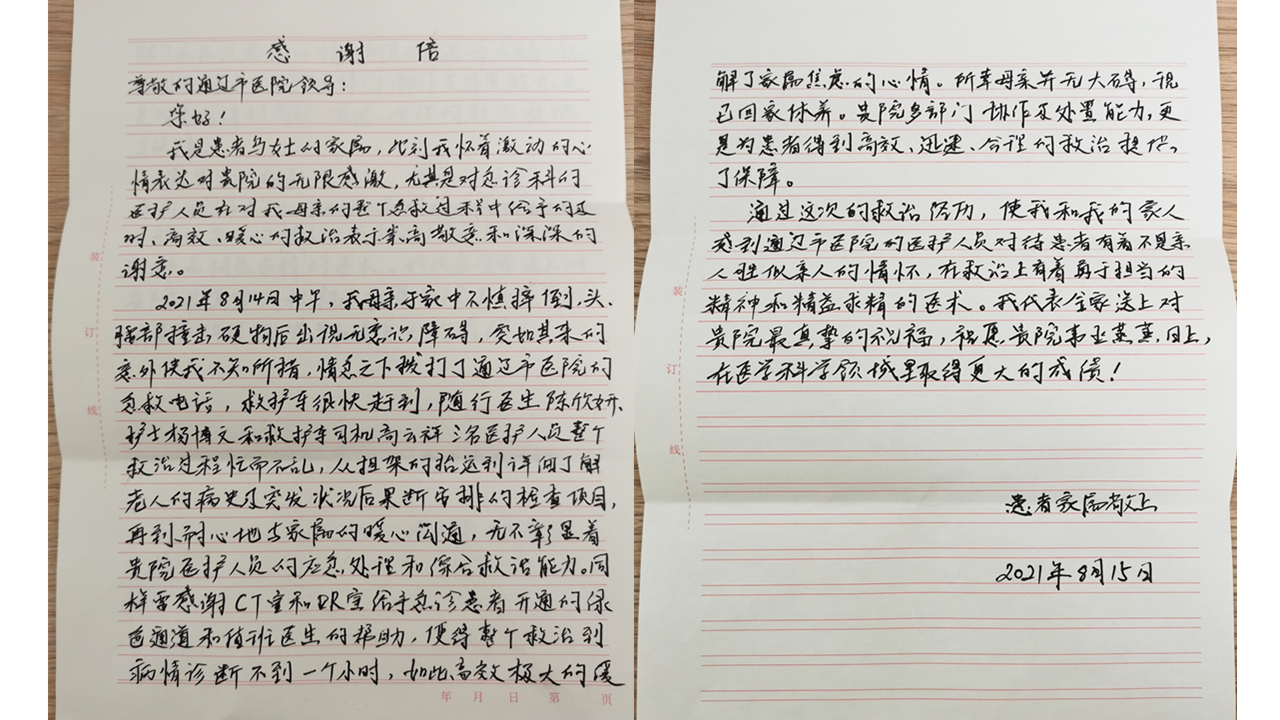 感谢信
尊敬的通辽市医院领导：
您好！
我是患者乌女士的家属，此刻我怀着激动的心
情表达对贵院的无限感激，尤其是对急诊科的
医护人员在对我母亲的整个急救过程中给予的及
时、高效、暖心的救治表示崇高敬意和深深的
谢意。
2021年8月14日中午，我母亲于家中不慎摔倒，头、
腰部撞击硬物后出现无意识障碍，突如其来的
意外使我不知所措，情急之下拨打了通辽市医院的
急救电话，救护车很快赶到，随行医生陈欣妍、
护士杨博文和救护车司机高云祥三名医护人员整个
救治过程忙而不乱，从担架的抬运到详问了解
老人的病史及突发状况后果断安排的检查项目，
再到耐心地与家属的暖心沟通，无不彰显着
贵院医护人员的应急处理和综合救治能力。同
样要感谢CT室和DR室给予急诊患者开通的绿
色通道和值班医生的帮助，使得整个救治到
病情诊断不到一个小时，如此高效极大的缓
年 月 日 第 页
解了家属焦虑的心情。所幸母亲并无大碍，现
已回家休养。贵院多部门协作及处置能力，更
是为患者得到高效、迅速、合理的救治提供
了保障。
通过这次的救治经历，使我和我的家人
感到通辽市医院的医护人员对待患者有着不是亲
人胜似亲人的情怀，在救治上有着勇于担当的
精神和精益求精的医术。我代表全家送上对
贵院最真挚的祝福，祝愿贵院事业蒸蒸日上，
在医学科学领域里取得更大的成绩！
患者家属敬上
2021年8月15日
装
订
线
装
订
线